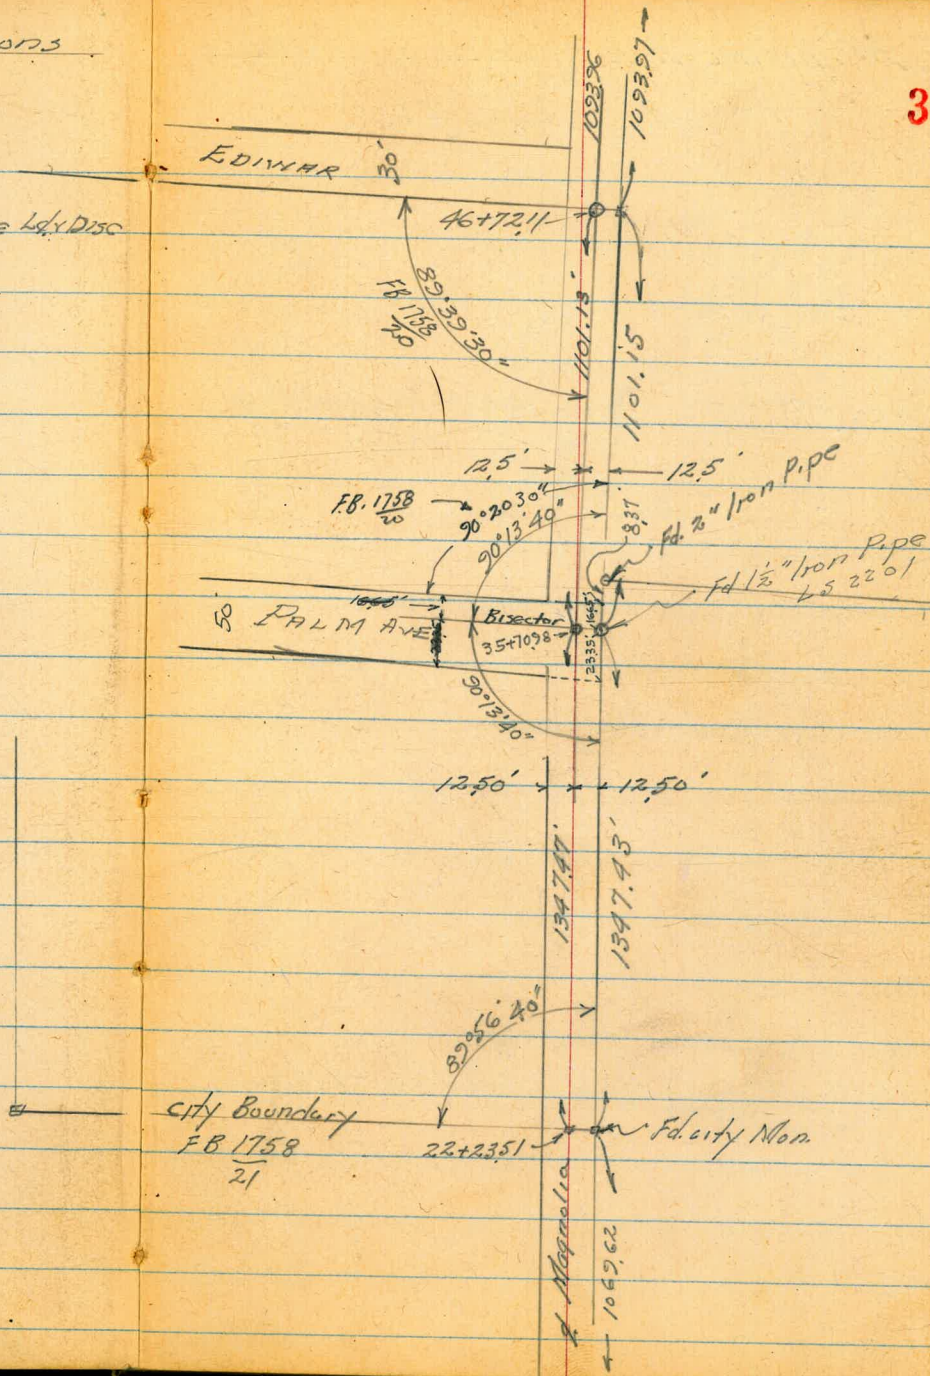 ons
3
1093.96
1093.97
EDIWAR 30'
46+72.11
e Ld & Disc
89°39'30"
FB 1758
20
1101.13'
1101.15
12.5'
12.5'
F.B. 1758
20
90°20'30"
90°13'40"
8.37'
Fd. 2" Iron Pipe
Fd 1½" Iron Pipe
LS 2201
50'
PALM AVE
16.65'
Bisector
35+70.98
23.35'
16.65'
90°13'40"
12.50'
12.50'
1347.47'
1347.43'
89°56'40"
City Boundary
FB 1758
21
22+23.51
Fd. city Mon.
Magnolia
1069.62